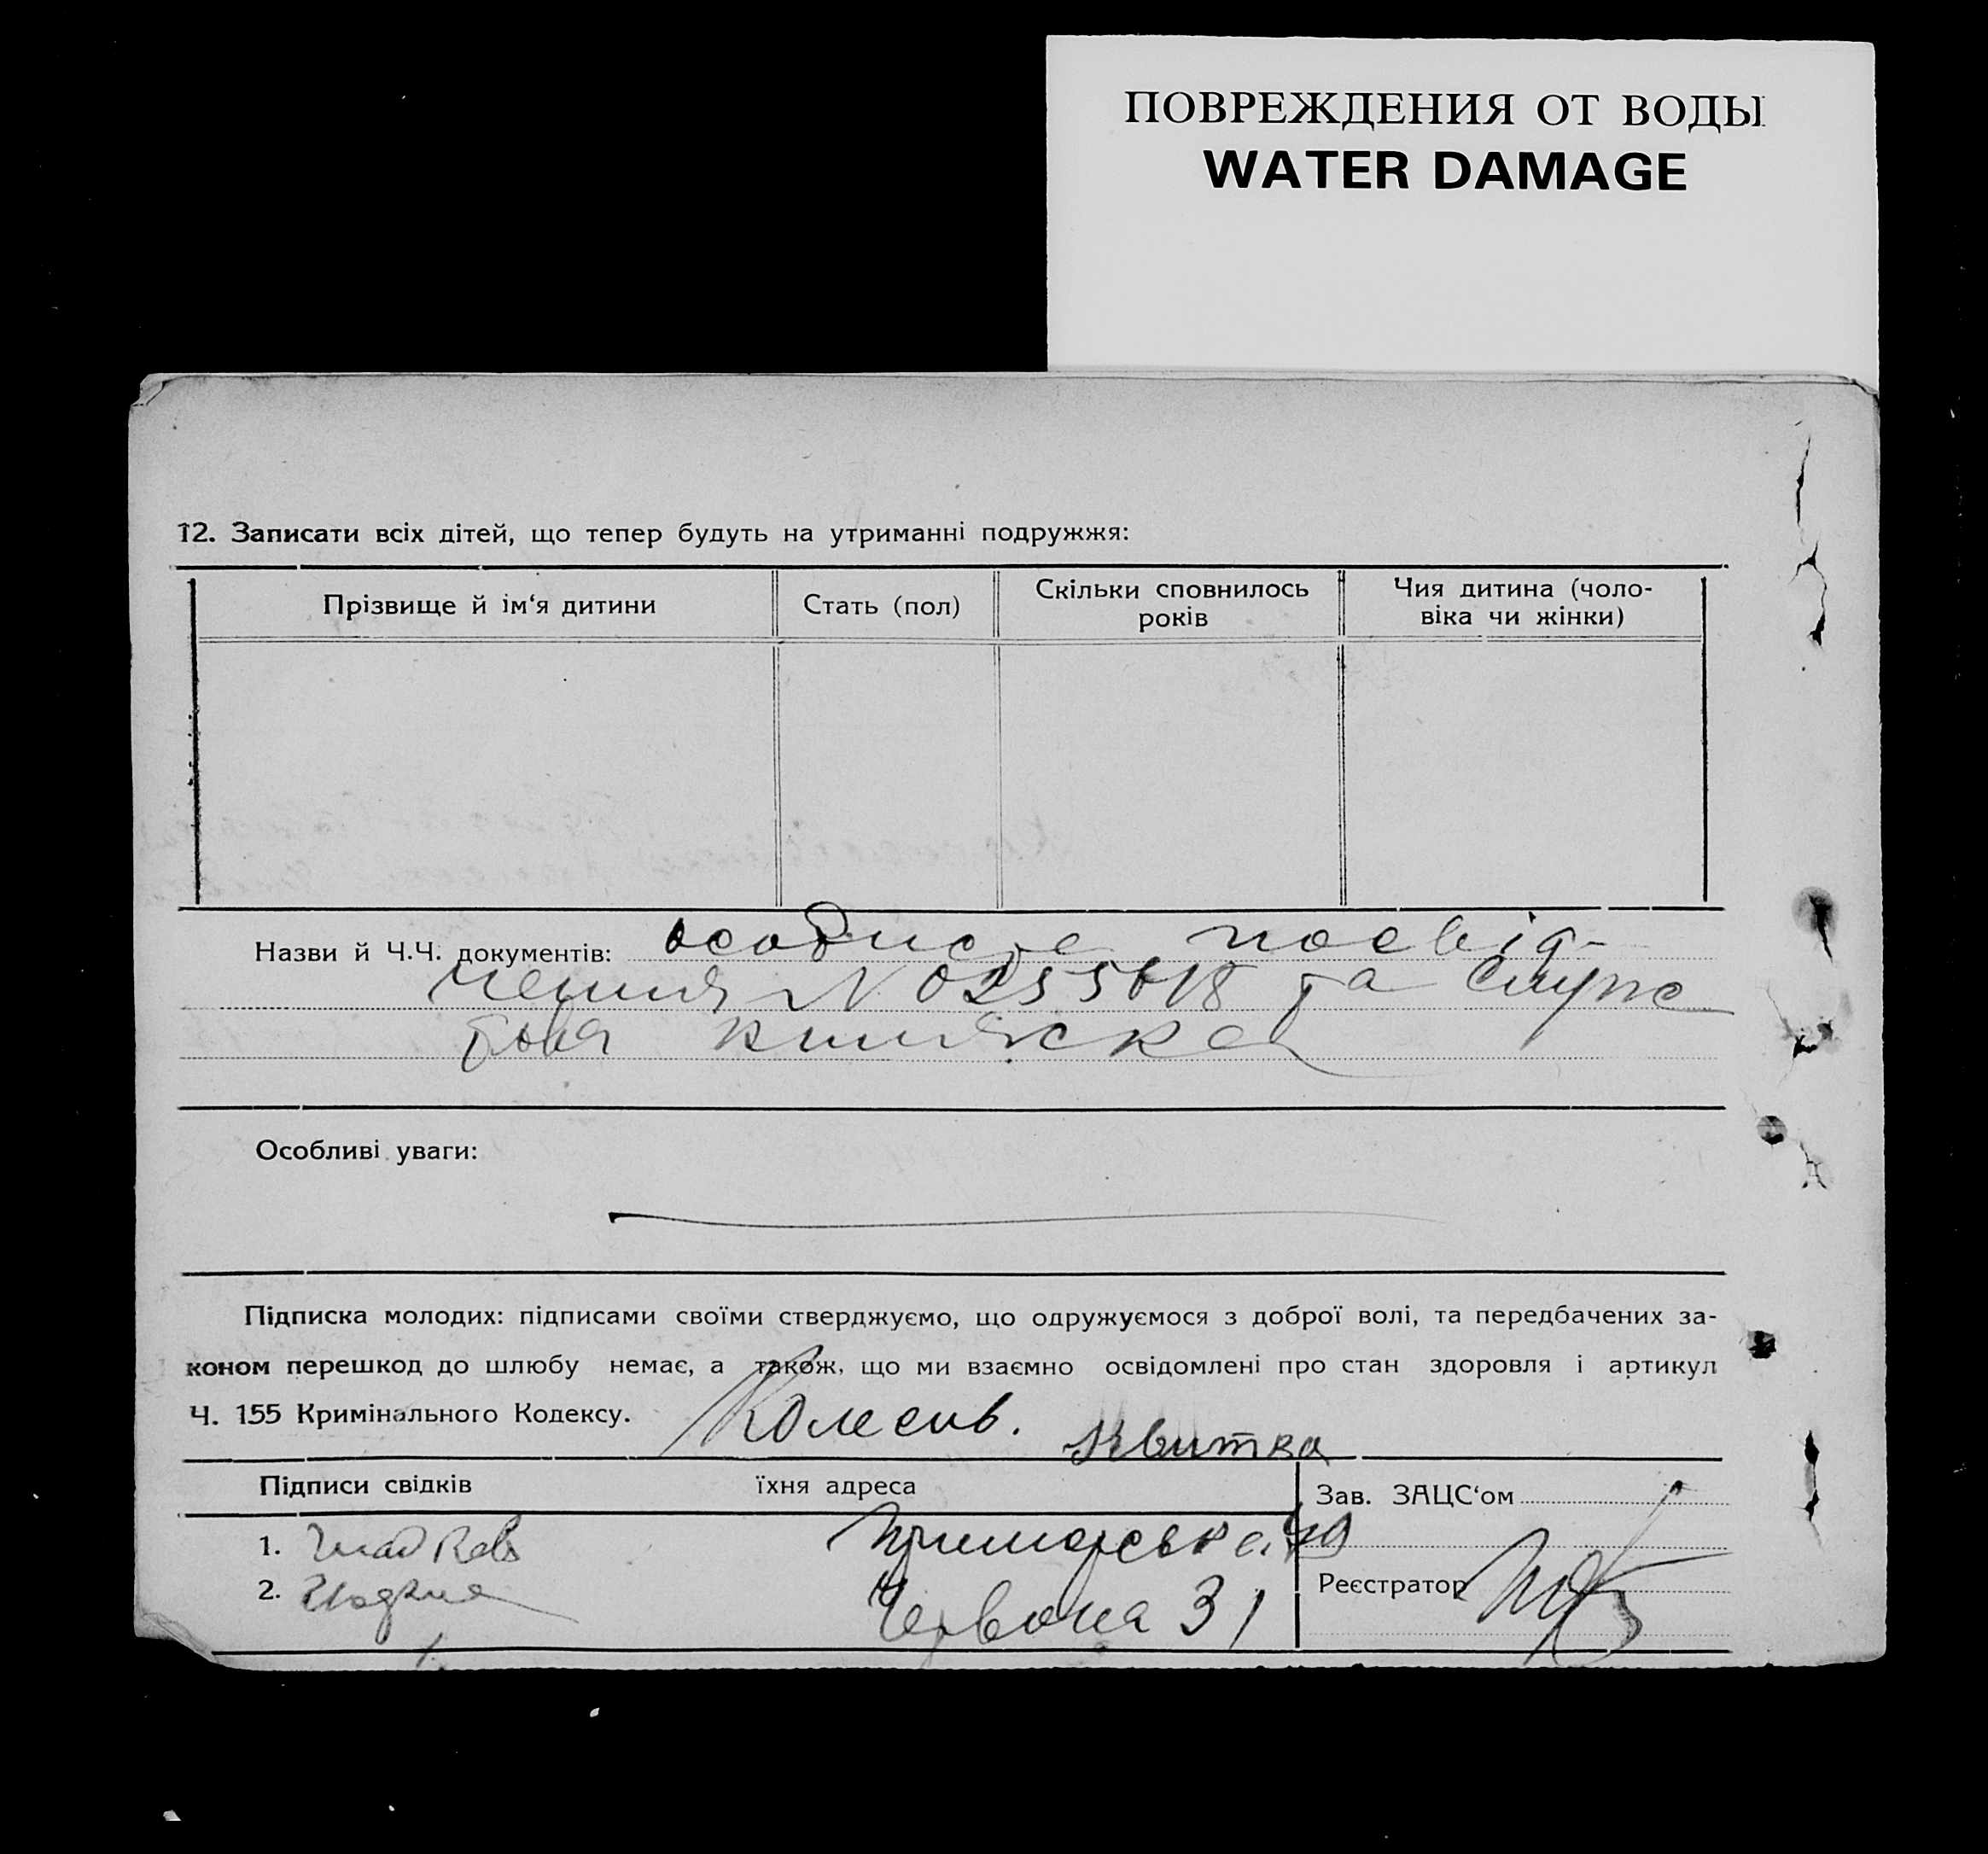 ПОВРЕЖДЕНИЯ ОТ ВОДЫ
WATER DAMAGE
12. Записати всіх дітей, що тепер будуть на утриманні подружжя:
Прізвище й ім‘я дитини
Стать (пол)
Скільки сповнилось
років
Чия дитина (чоло-
віка чи жінки)
Назви й Ч.Ч. документів: особисте посвід-
чення N та служ
бова книжка
Особливі уваги:
Підписка молодих: підписами своїми стверджуємо, що одружуємося з доброї волі, та передбачених за-
коном перешкод до шлюбу немає, а також, що ми взаємно освідомлені про стан здоровля і артикул
Ч. 155 Кримінального Кодексу. Колесив.
Квитка
Підписи свідків їхня адреса
Зав. ЗАЦС‘ом
1. Приморська
2. Червона 31
Реєстратор